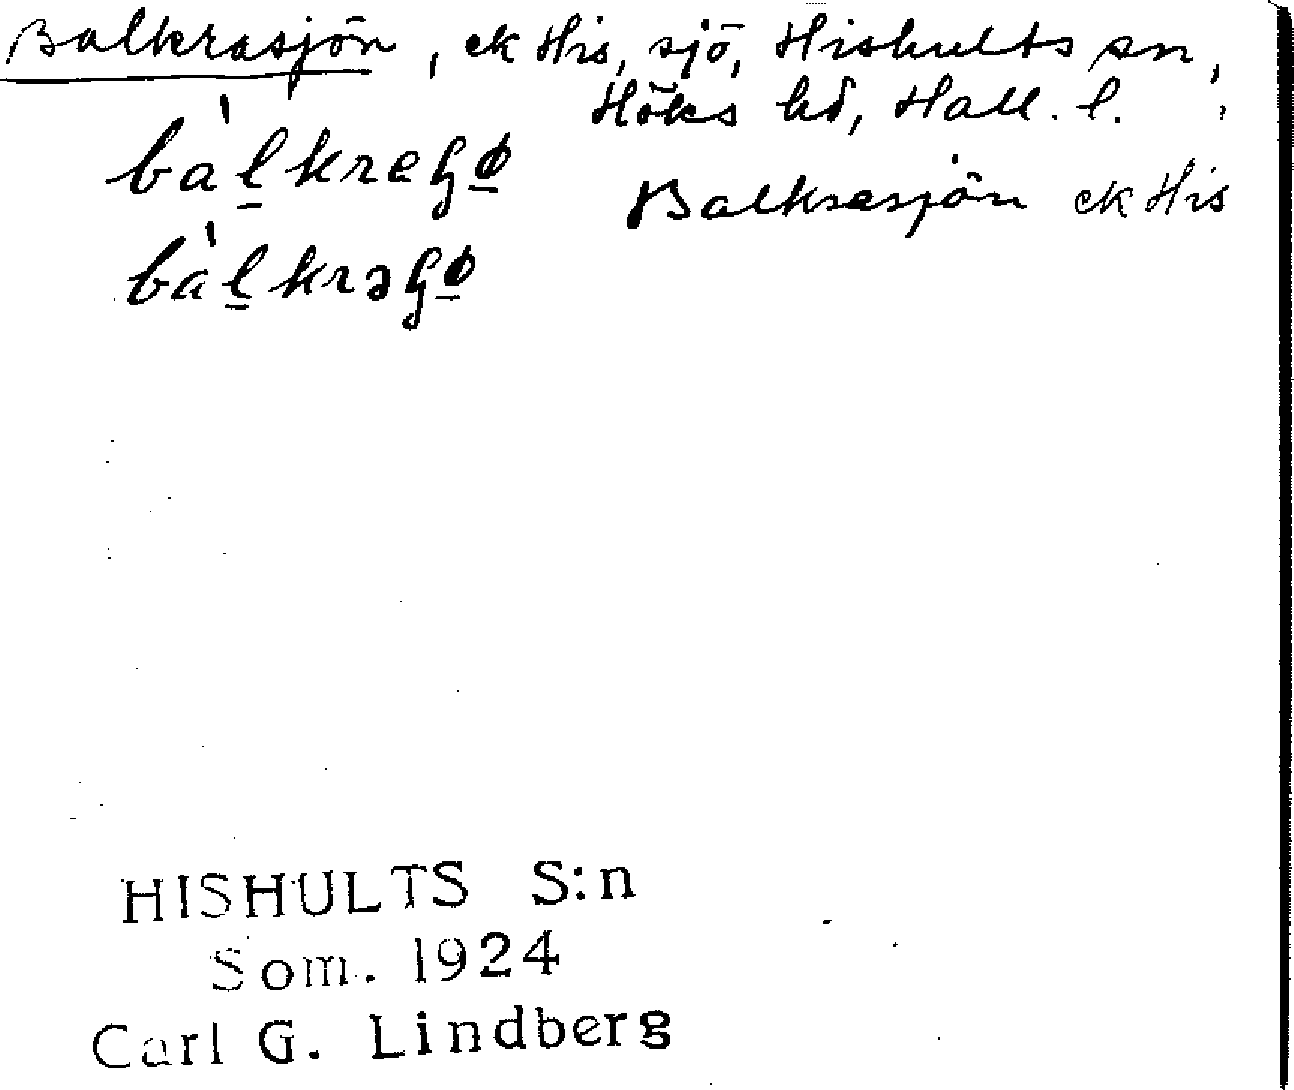 Balkrasjön, ek His, sjö, Hishults sn,
Höks hd, Hall. l.
bàl̠kreɧø̠ Balkrasjön ek His
bàl̠krəɧø̠
HISHULTS S:n
Som. 1924
Carl G. Lindberg